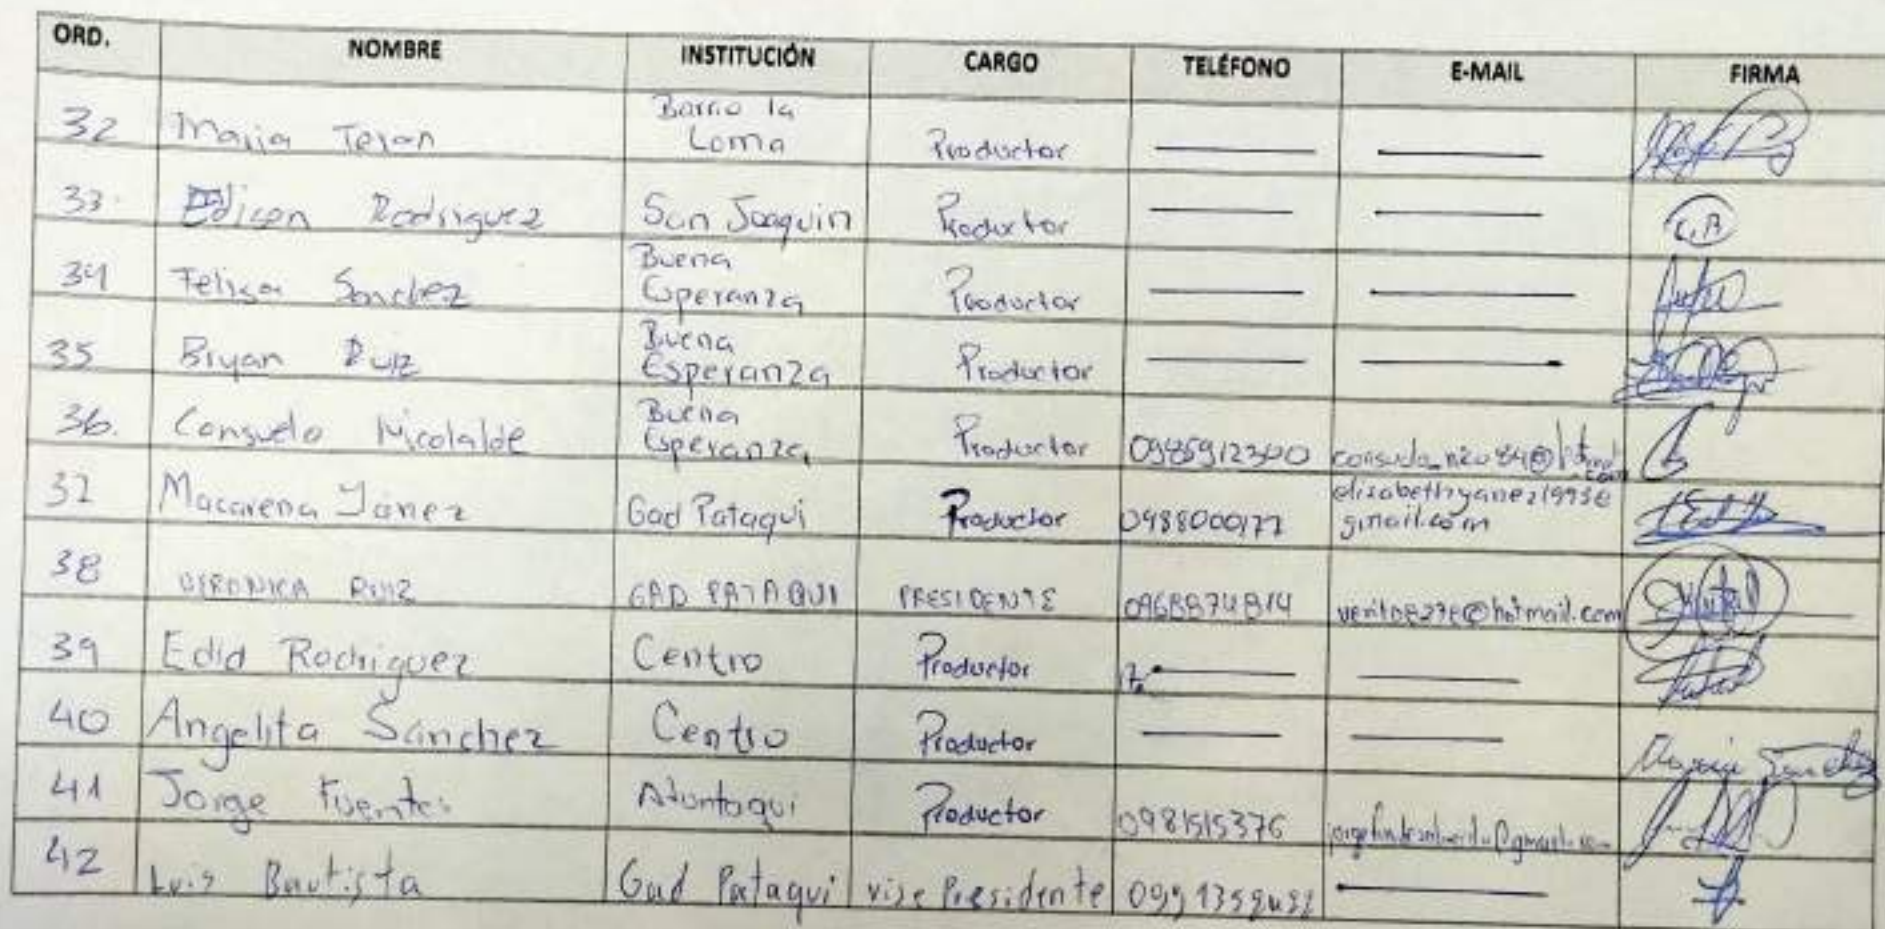 ORD. NOMBRE INSTITUCIÓN CARGO TELÉFONO E-MAIL FIRMA
32 Maria Teran Barrio la Loma Productor
33. Edison Rodriguez San Joaquin Productor
34 Felisa Sanchez Buena Esperanza Productor
35 Bryan Ruiz Buena Esperanza Productor
36. Consuelo Nicolalde Buena Esperanza Productor
37 Macarena Yanez Gad Pataqui Productor 0988000177 elisabethyanez1993@gmail.com
38 VERONICA RUIZ GAD PATAQUI PRESIDENTE
39 Edid Rodriguez Centro Productor
40 Angelita Sanchez Centro Productor
41 Jorge Fuentes Atuntaqui Productor 0981515376
42 Luis Bautista Gad Pataqui vise Presidente